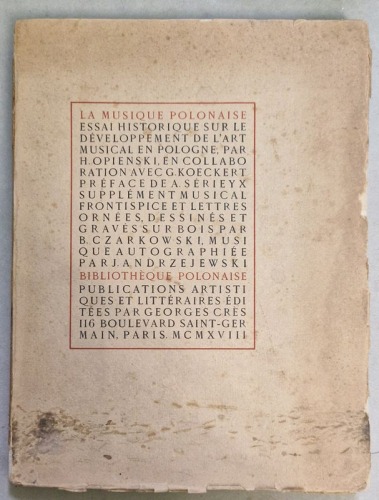 LA MUSIQUE POLONAISE
ESSAI HISTORIQUE SUR LE
DÉVELOPPEMENT DE L'ART
MUSICAL EN POLOGNE, PAR
H. OPIENSKI, EN COLLABO
RATION AVEC G. KOECKERT
PRÉFACE DE A. SÉRIEYX
SUPPLÉMENT MUSICAL
FRONTISPICE ET LETTRES
ORNÉES, DESSINÉS ET
GRAVÉS SUR BOIS PAR
B. CZARKOWSKI, MUSI
QUE AUTOGRAPHIÉE
PAR J. ANDRZEJEWSKI
BIBLIOTHÈQUE POLONAISE
PUBLICATIONS ARTISTI
QUES ET LITTÉRAIRES ÉDI
TÉES PAR GEORGES CRÈS
116 BOULEVARD SAINT-GER
MAIN, PARIS. MCMXVIII